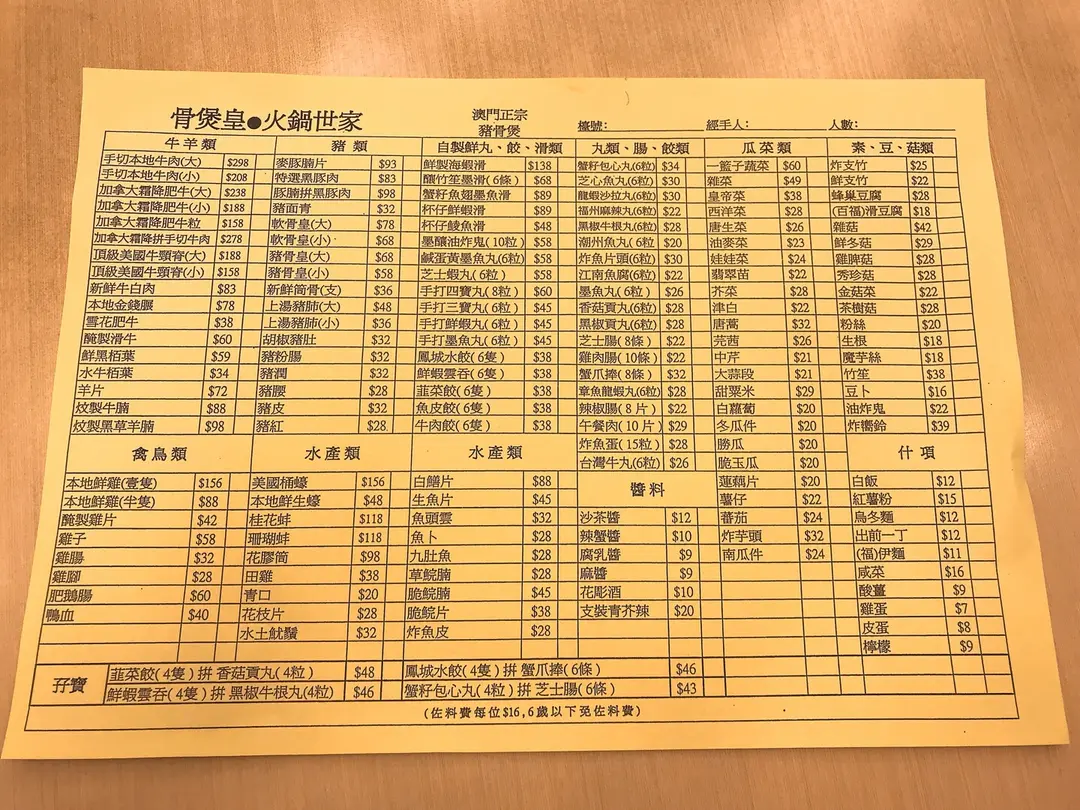 骨煲皇●火鍋世家
澳門正宗
豬骨煲
檯號：
經手人：
人數：
牛羊類
手切本地牛肉(大) $298
手切本地牛肉(小) $208
加拿大霜降肥牛(大) $238
加拿大霜降肥牛(小) $188
加拿大霜降肥牛粒 $158
加拿大霜降拼手切牛肉 $278
頂級美國牛頸脊(大) $188
頂級美國牛頸脊(小) $158
新鮮牛白肉 $83
本地金錢𦟌 $78
雪花肥牛 $38
醃製滑牛 $60
鮮黑栢葉 $59
水牛栢葉 $34
羊片 $72
炆製牛腩 $88
炆製黑草羊腩 $98
豬類
麥豚腩片 $93
特選黑豚肉 $83
豚腩拼黑豚肉 $98
豬面青 $32
軟骨皇(大) $78
軟骨皇(小) $68
豬骨皇(大) $68
豬骨皇(小) $58
新鮮筒骨(支) $36
上湯豬肺(大) $48
上湯豬肺(小) $36
胡椒豬肚 $32
豬粉腸 $32
豬潤 $32
豬腰 $28
豬皮 $32
豬紅 $28
自製鮮丸、餃、滑類
鮮製海蝦滑 $138
釀竹笙墨滑(6條) $68
蟹籽魚翅墨魚滑 $89
杯仔鮮蝦滑 $89
杯仔鯪魚滑 $48
墨釀油炸鬼(10粒) $58
鹹蛋黃墨魚丸(6粒) $58
芝士蝦丸(6粒) $58
手打四寶丸(8粒) $60
手打三寶丸(6粒) $45
手打鮮蝦丸(6粒) $45
手打墨魚丸(6粒) $45
鳳城水餃(6隻) $38
鮮蝦雲吞(6隻) $38
韮菜餃(6隻) $38
魚皮餃(6隻) $38
牛肉餃(6隻) $38
丸類、腸、餃類
蟹籽包心丸(6粒) $34
芝心魚丸(6粒) $30
龍蝦沙拉丸(6粒) $30
福州麻辣丸(6粒) $22
黑椒牛根丸(6粒) $28
潮州魚丸(6粒) $20
炸魚片頭(6粒) $30
江南魚腐(6粒) $22
墨魚丸(6粒) $26
香菇貢丸(6粒) $28
黑椒貢丸(6粒) $28
芝士腸(8條) $22
雞肉腸(10條) $22
蟹爪捧(8條) $32
章魚龍蝦丸(6粒) $28
辣椒腸(8片) $22
午餐肉(10片) $29
炸魚蛋(15粒) $28
台灣牛丸(6粒) $26
瓜菜類
一籃子蔬菜 $60
雜菜 $49
皇帝菜 $38
西洋菜 $28
唐生菜 $26
油麥菜 $23
娃娃菜 $24
翡翠苗 $22
芥菜 $28
津白 $22
唐萵 $32
芫茜 $26
中芹 $21
大蒜段 $21
甜粟米 $29
白蘿蔔 $20
冬瓜件 $20
勝瓜 $20
脆玉瓜 $20
蓮藕片 $20
薯仔 $22
蕃茄 $24
炸芋頭 $32
南瓜件 $24
素、豆、菇類
炸支竹 $25
鮮支竹 $22
蜂巢豆腐 $28
(百福)滑豆腐 $18
雜菇 $42
鮮冬菇 $29
雞脾菇 $28
秀珍菇 $28
金菇菜 $22
茶樹菇 $28
粉絲 $20
生根 $18
魔芋絲 $18
竹笙 $38
豆卜 $16
油炸鬼 $22
炸嚮鈴 $39
禽鳥類
本地鮮雞(壹隻) $156
本地鮮雞(半隻) $88
醃製雞片 $42
雞子 $58
雞腸 $32
雞腳 $28
肥鵝腸 $60
鴨血 $40
水產類
美國桶蠔 $156
本地鮮生蠔 $48
桂花蚌 $118
珊瑚蚌 $118
花膠筒 $98
田雞 $38
青口 $20
花枝片 $28
水土魷鬚 $32
水產類
白鱔片 $88
生魚片 $45
魚頭雲 $32
魚卜 $28
九肚魚 $28
草鯇腩 $28
脆鯇腩 $45
脆鯇片 $38
炸魚皮 $28
醬料
沙茶醬 $12
辣蟹醬 $10
腐乳醬 $9
麻醬 $9
花彫酒 $10
支裝青芥辣 $20
什項
白飯 $12
紅薯粉 $15
烏冬麵 $12
出前一丁 $12
(福)伊麵 $11
咸菜 $16
酸薑 $9
雞蛋 $7
皮蛋 $8
檸檬 $9
孖寶
韮菜餃(4隻)拼 香菇貢丸(4粒) $48
鮮蝦雲吞(4隻)拼 黑椒牛根丸(4粒) $46
鳳城水餃(4隻)拼 蟹爪捧(6條) $46
蟹籽包心丸(4粒)拼 芝士腸(6條) $43
(佐料費每位$16,6歲以下免佐料費)